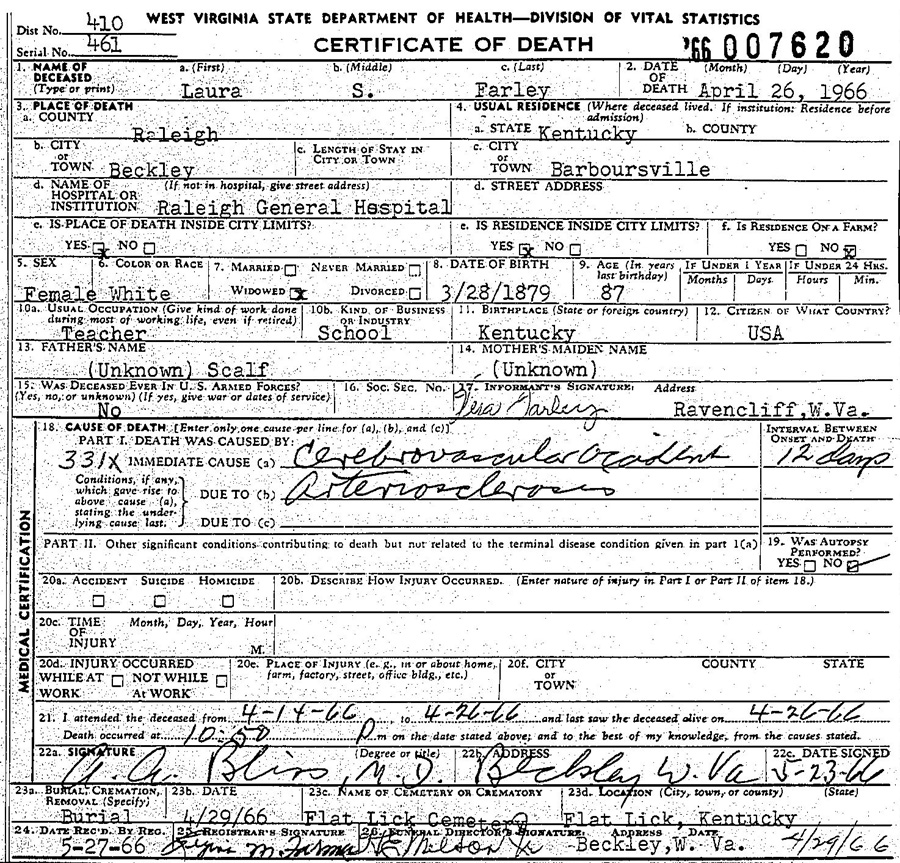 Dist No. 410 WEST VIRGINIA STATE DEPARTMENT OF HEALTH—DIVISION OF VITAL STATISTICS
Serial No. 461 CERTIFICATE OF DEATH '66 007620
1. NAME OF DECEASED (Type or print) a. (First) Laura b. (Middle) S. c. (Last) Farley 2. DATE OF DEATH (Month) (Day) (Year) April 26, 1966
3. PLACE OF DEATH 4. USUAL RESIDENCE (Where deceased lived. If institution: Residence before admission)
a. COUNTY Raleigh a. STATE Kentucky b. COUNTY
b. CITY or TOWN Beckley c. LENGTH OF STAY IN CITY OR TOWN c. CITY or TOWN Barboursville
d. NAME OF HOSPITAL OR INSTITUTION (If not in hospital, give street address) Raleigh General Hospital d. STREET ADDRESS
e. IS PLACE OF DEATH INSIDE CITY LIMITS? e. IS RESIDENCE INSIDE CITY LIMITS? f. IS RESIDENCE ON A FARM?
YES x NO YES x NO YES NO x
5. SEX Female 6. COLOR OR RACE White 7. MARRIED NEVER MARRIED WIDOWED x DIVORCED 8. DATE OF BIRTH 3/28/1879 9. AGE (In years last birthday) 87 IF UNDER 1 YEAR Months Days IF UNDER 24 HRS. Hours Min.
10a. USUAL OCCUPATION (Give kind of work done during most of working life, even if retired) Teacher 10b. KIND OF BUSINESS OR INDUSTRY School 11. BIRTHPLACE (State or foreign country) Kentucky 12. CITIZEN OF WHAT COUNTRY? USA
13. FATHER'S NAME (Unknown) Scalf 14. MOTHER'S MAIDEN NAME (Unknown)
15. WAS DECEASED EVER IN U. S. ARMED FORCES? (Yes, no, or unknown) (If yes, give war or dates of service) No 16. SOC. SEC. NO. 17. INFORMANT'S SIGNATURE: Vera Farley Address Ravencliff, W.Va.
18. CAUSE OF DEATH [Enter only one cause per line for (a), (b), and (c)] INTERVAL BETWEEN ONSET AND DEATH
PART I. DEATH WAS CAUSED BY:
331X IMMEDIATE CAUSE (a) Cerebrovascular accident 12 days
Conditions, if any, which gave rise to above cause (a), stating the underlying cause last. DUE TO (b) Arteriosclerosis
DUE TO (c)
PART II. Other significant conditions contributing to death but not related to the terminal disease condition given in part 1(a) 19. WAS AUTOPSY PERFORMED? YES NO
20a. ACCIDENT SUICIDE HOMICIDE 20b. DESCRIBE HOW INJURY OCCURRED. (Enter nature of injury in Part I or Part II of item 18.)
20c. TIME OF INJURY Month, Day, Year, Hour M.
20d. INJURY OCCURRED WHILE AT WORK NOT WHILE AT WORK 20e. PLACE OF INJURY (e. g., in or about home, farm, factory, street, office bldg., etc.) 20f. CITY or TOWN COUNTY STATE
MEDICAL CERTIFICATION
21. I attended the deceased from 4-14-66 to 4-26-66 and last saw the deceased alive on 4-26-66
Death occurred at 10:50 P. m on the date stated above; and to the best of my knowledge, from the causes stated.
22a. SIGNATURE (Degree or title) 22b. ADDRESS 22c. DATE SIGNED
A. A. Bliss, M.D. Beckley W. Va 5-23-66
23a. BURIAL, CREMATION, REMOVAL (Specify) Burial 23b. DATE 4/29/66 23c. NAME OF CEMETERY OR CREMATORY Flat Lick Cemetery 23d. LOCATION (City, town, or county) (State) Flat Lick, Kentucky
24. DATE REC'D. BY REG. 5-27-66 25. REGISTRAR'S SIGNATURE 26. FUNERAL DIRECTOR'S SIGNATURE: ADDRESS Beckley, W. Va. DATE 4/29/66